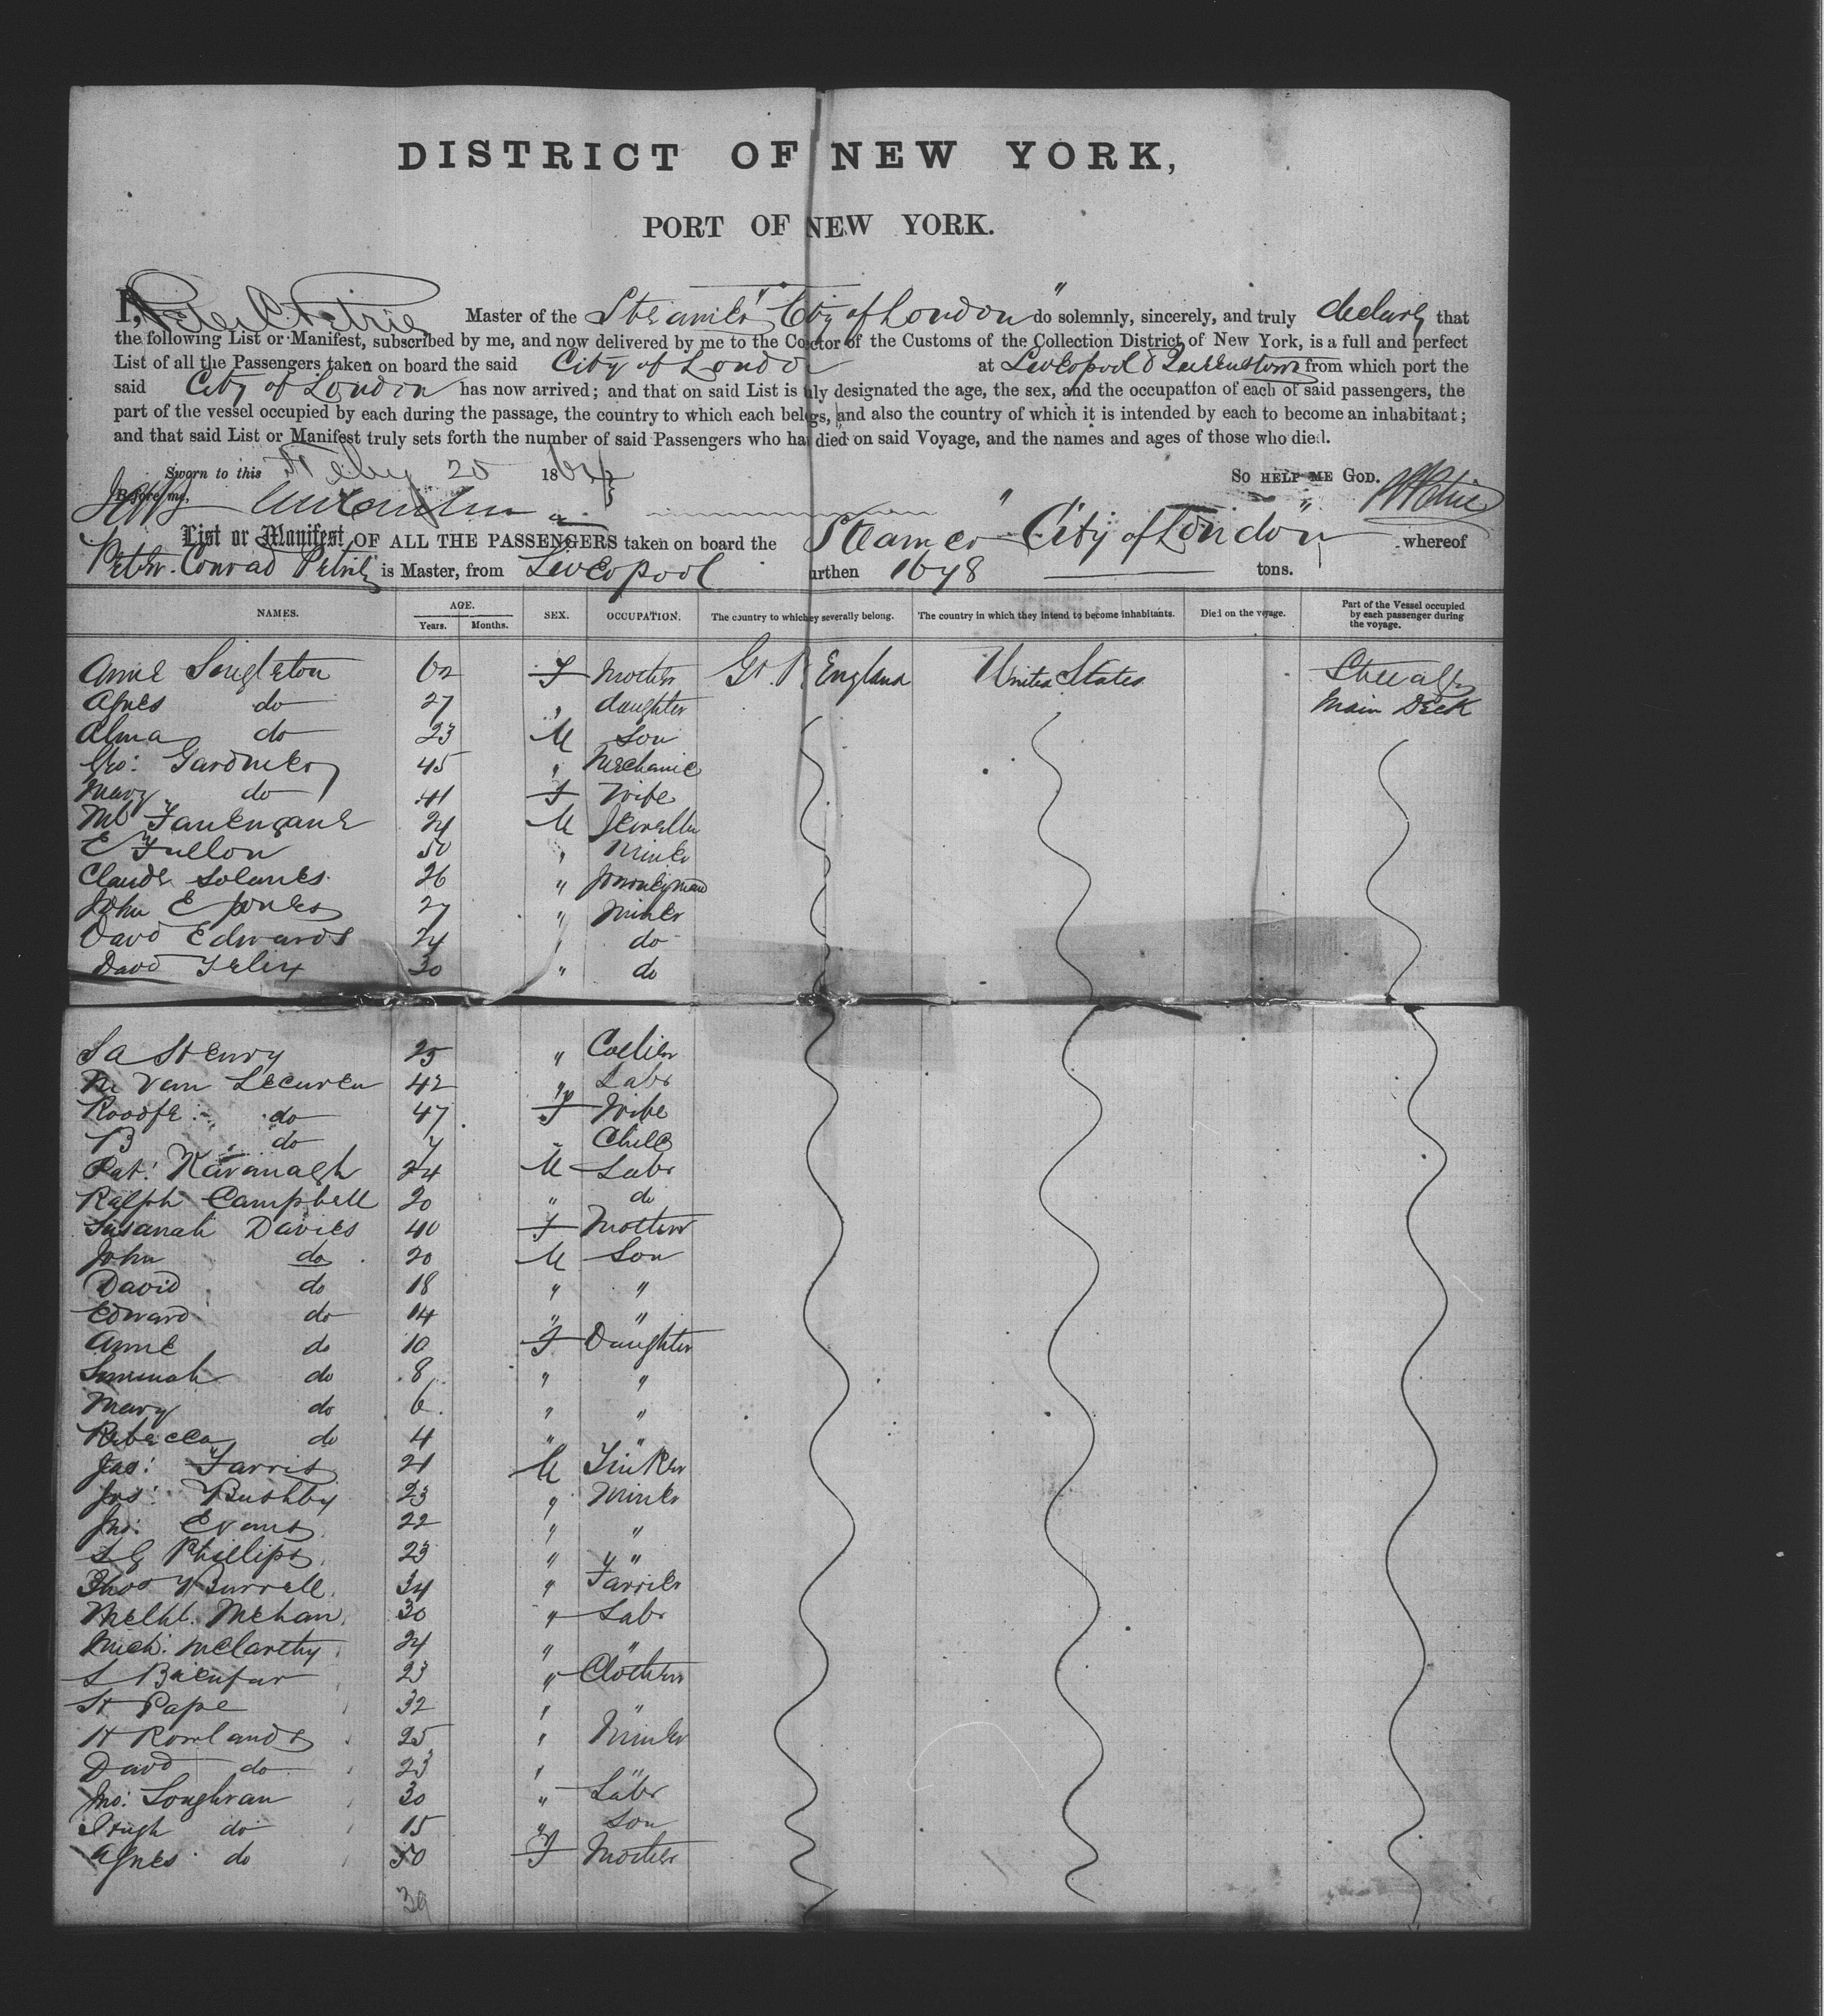 DISTRICT OF NEW YORK,
PORT OF NEW YORK.
I, Peter C Petrie Master of the Steamer "City of London" do solemnly, sincerely, and truly declare that
the following List or Manifest, subscribed by me, and now delivered by me to the Co ctor of the Customs of the Collection District of New York, is a full and perfect
List of all the Passengers taken on board the said City of London at Liverpool & Queenstown from which port the
said City of London has now arrived; and that on said List is uly designated the age, the sex, and the occupation of each of said passengers, the
part of the vessel occupied by each during the passage, the country to which each bel gs, and also the country of which it is intended by each to become an inhabitant;
and that said List or Manifest truly sets forth the number of said Passengers who ha died on said Voyage, and the names and ages of those who died.
Sworn to this Feby 20 1864 So HELP ME GOD. PCPetrie
Before me,
List or Manifest OF ALL THE PASSENGERS taken on board the Steamer "City of London" whereof
Peter Conrad Petrie is Master, from Liverpool urthen 1678 tons.
NAMES. AGE. Years. Months. SEX. OCCUPATION. The country to which ey severally belong. The country in which they intend to become inhabitants. Died on the voyage. Part of the Vessel occupied by each passenger during the voyage.
Anne Singleton 62 F Mother Gt. B. England United States Steerage
Agnes do 27 " daughter Main Deck
Alma do 23 M Son
Geo: Gardner 45 " Mechanic
Mary do 41 F Wife
24 M Jeweller
E Fullon 50 " Miner
Claude 26 " Journeyman
John E Jones 27 " Miner
Davd Edwards 24 " do
Davd Felix 30 " do
S A Henry 25 " Collier
M Van 42 " Labr
do 47 F Wife
B do 7 " Child
Pat: Kavanagh 24 M Labr
Ralph Campbell 20 " do
Susanah Davies 40 F Mother
John do 20 M Son
David do 18 " "
Edward do 14 " "
Anne do 10 F Daughter
do 8 " "
Mary do 6 " "
Rebecca do 4 " "
Jas: Farris 21 M Tinker
Jos: Bushby 23 " Miner
Jno: Evans 22 " "
S G Phillips 23 " "
Thos Burrell 34 " Farrier
Mehan 30 " Labr
Mich: McCarthy 24 " "
S 23 " Clothier
H Pape 32 " "
H Rowlands 25 " Miner
Davd do 23 " "
Jno: Loughran 30 " Labr
Hugh do 15 " Son
Agnes do 50 F Mother
39